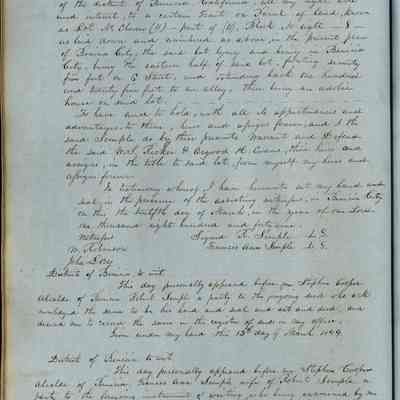 of the district of Benicia, California, all my right
and interest, to a certain tract or parcel of land, known
as Lot No. Eleven (11) part of (10), Block No eight
as laid down and numbered as above, in the present plan
of Benicia City; the said lot lying and being in Benicia
City, being the eastern half of said lot, fronting seventy
five feet on G Street, and extending back one hundred
and twenty five feet to an alley, there being an adobe
house on said lot.
To have and to hold, with all its appurtenances and
advantages, to them, heirs and assigns forever, and I the
said Semple do by these presents Warrant and Defend
the said Wm. & Evans, their heirs and
assigns, in the title to said lot, from myself my heirs and
assigns forever.
In testimony whereof I have hereunto set my hand and
seal, in the presence of the witnesses, in Benicia City
on this the twelfth day of March, in the year of our Lord
one thousand eight hundred and forty nine.
Witnesses Signed R. Semple L.S.
W. Robinson Frances Ann Semple L.S.
John Dory
District of Benicia to wit.
This day personally appeared before me Stephen Cooper
Alcalde of Benicia Robert Semple a party to the foregoing deed who ack
nowledged the same to be his hand and seal and act and deed, and
desired me to record the same in the register of deeds in my office.
Given under my hand this 13th day of March 1849.
District of Benicia to wit.
This day personally appeared before me Stephen Cooper
Alcalde of Benicia, Frances Ann Semple, wife of Robert Semple a
party to the foregoing instrument of writing who being examined by me